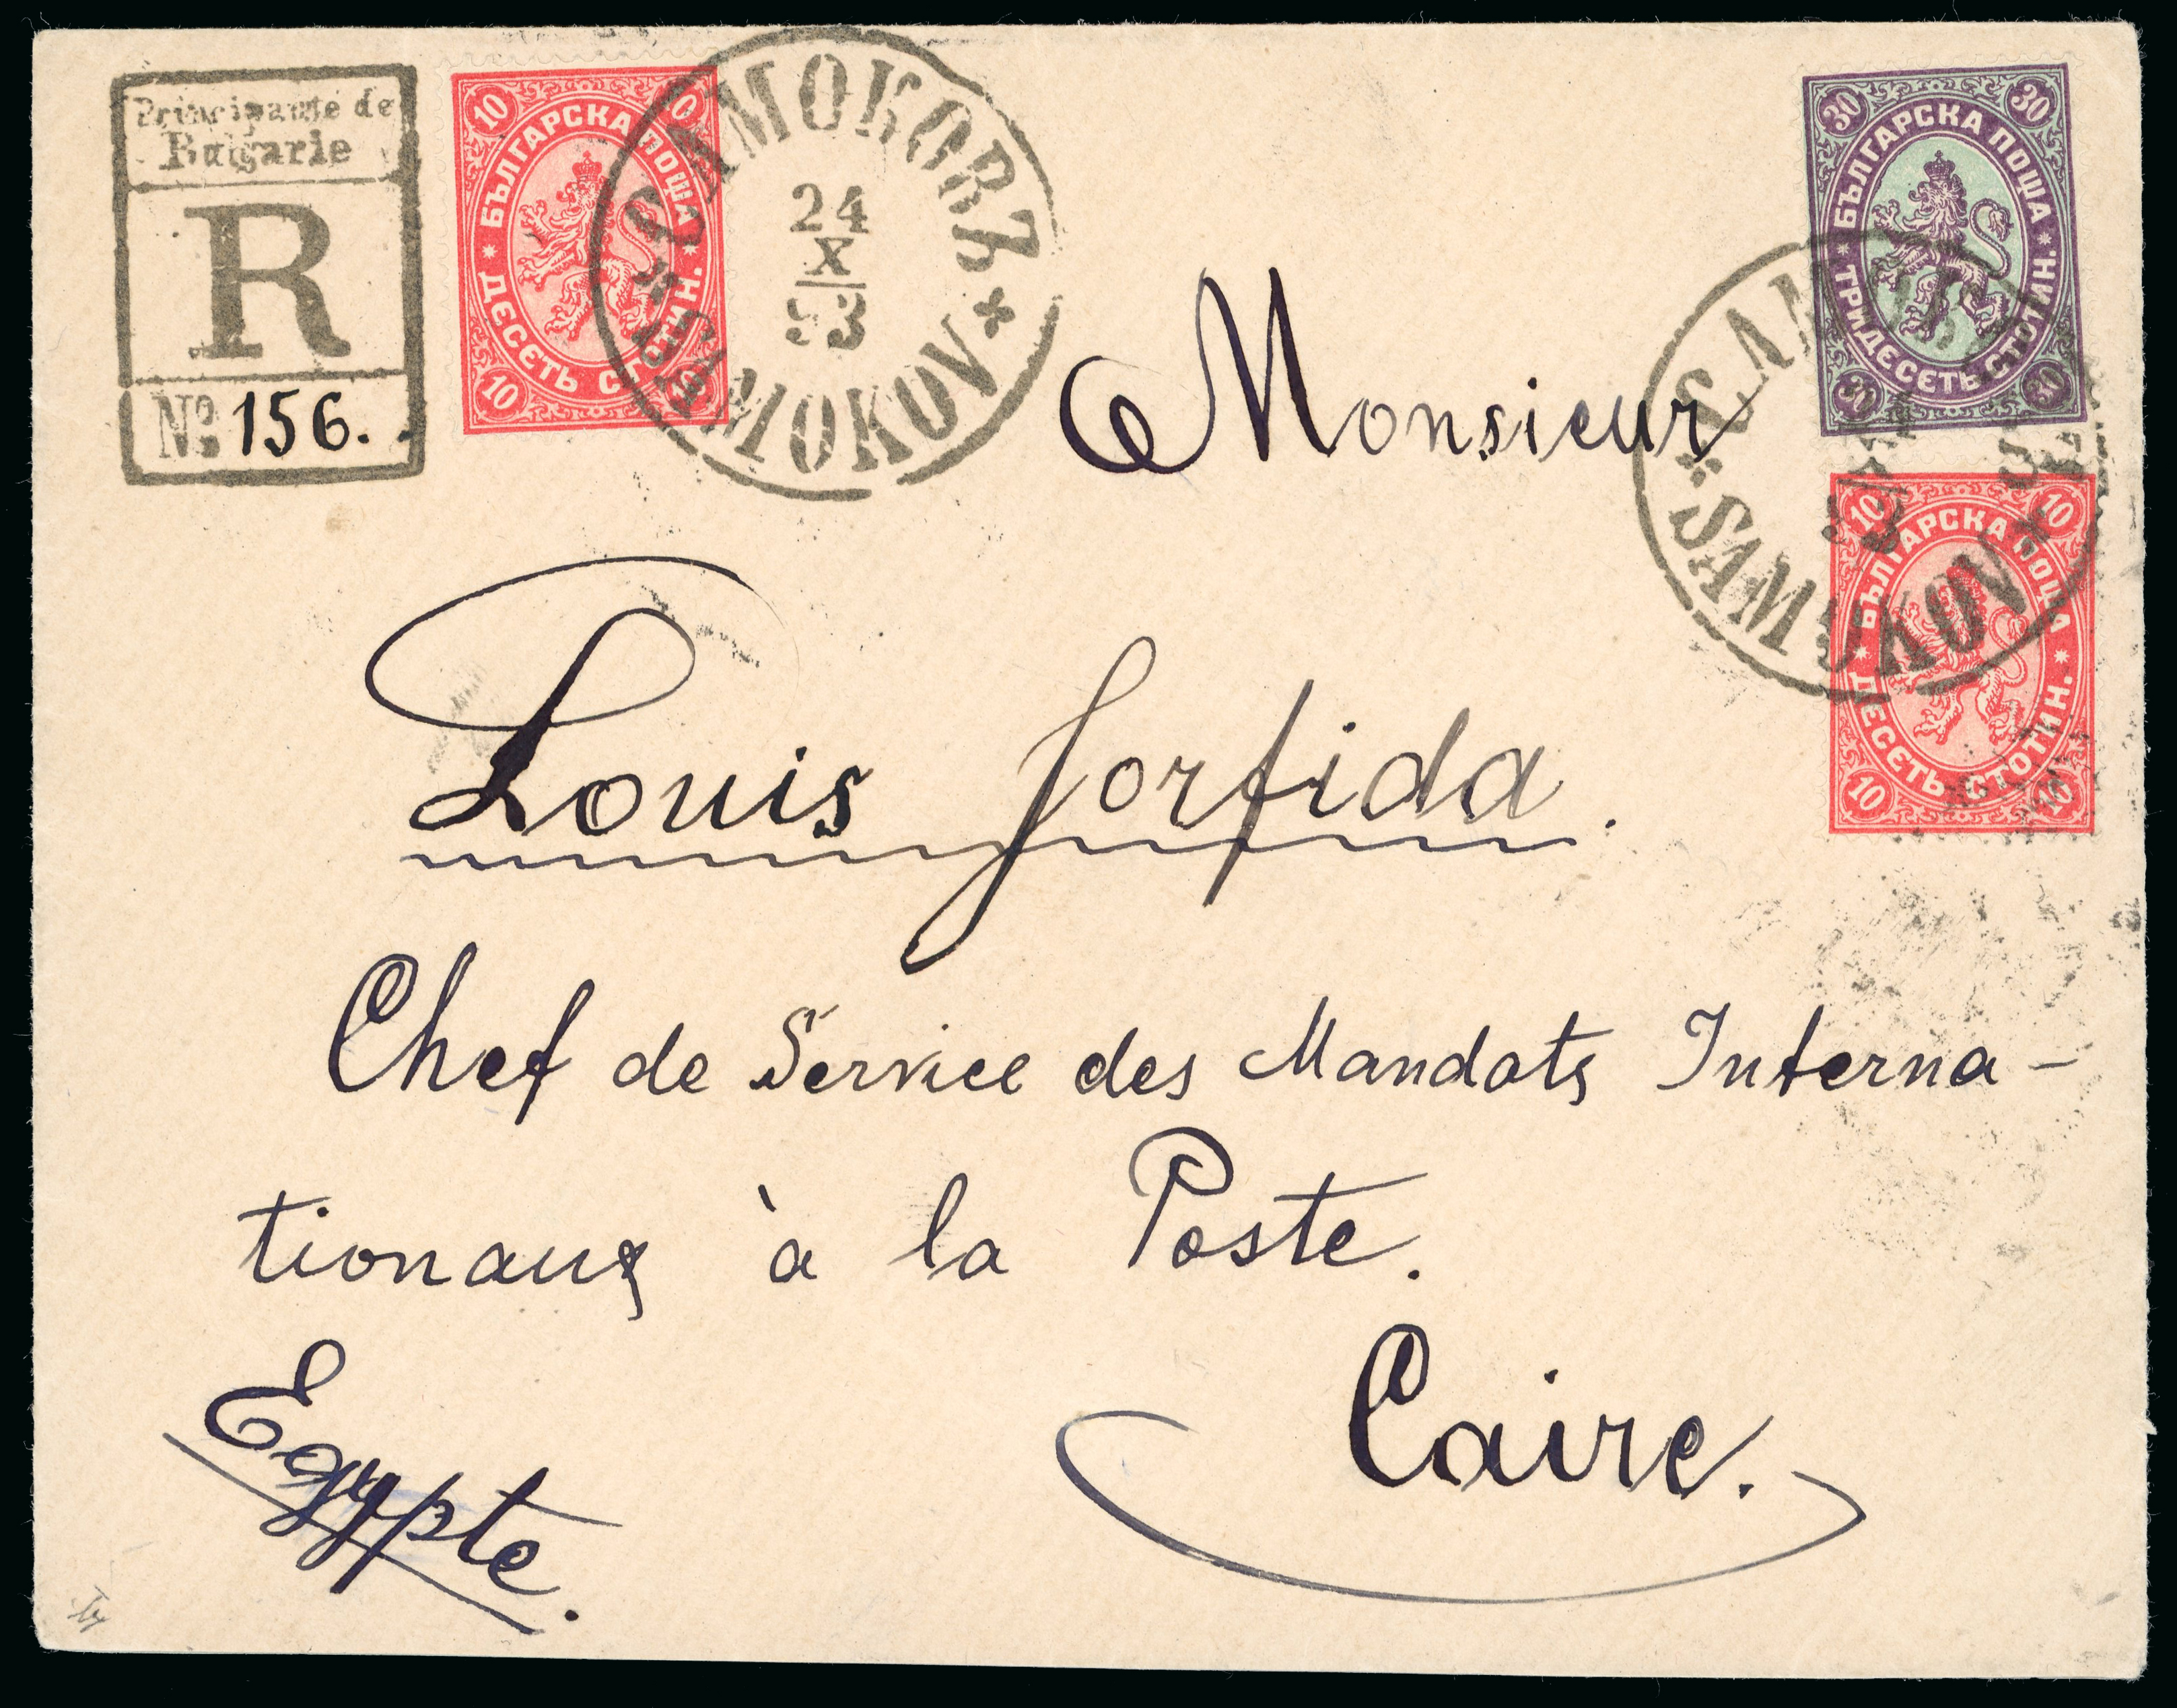 Principauté de
Bulgarie
R
No. 156.
10
БЪЛГАРСКА ПОЩА
ДЕСЕТЬ СТОТИН.
10 10
САМОКОВЪ
24
X
93
SAMOKOV
30 30
БЪЛГАРСКА ПОЩА
ТРИДЕСЕТЬ СТОТИН.
30 30
SAMOKOV
10 10
БЪЛГАРСКА ПОЩА
ДЕСЕТЬ СТОТИН.
10 10
Monsieur
Louis
Chef de Service des Mandats Interna-
tionaux à la Poste.
Caire.
Egypte.